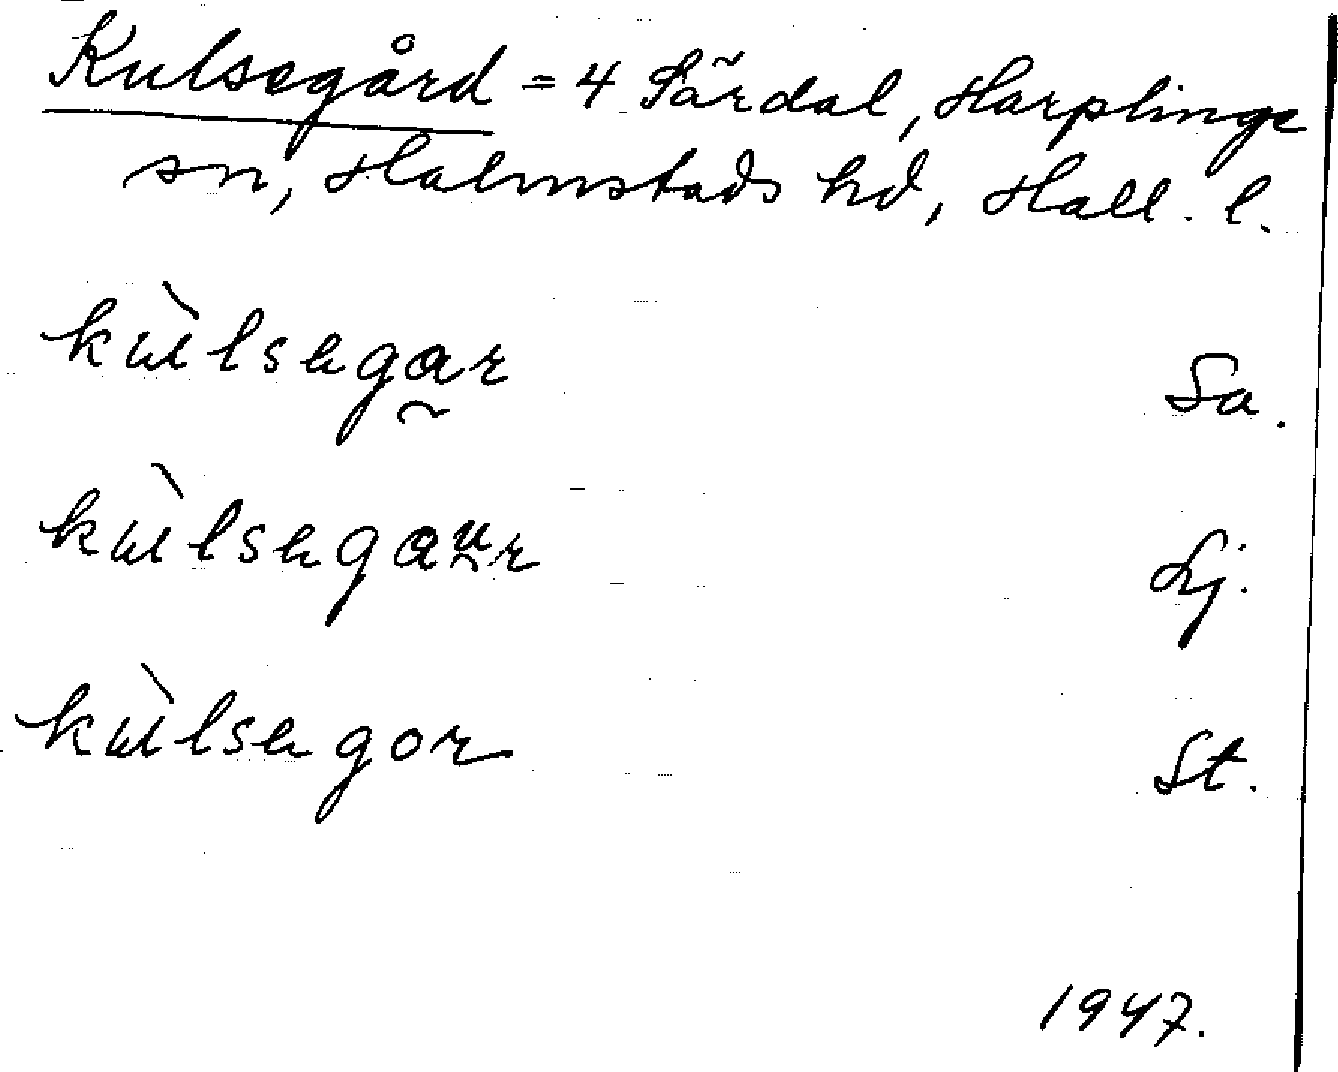 Kulsegård = 4 Särdal, Harplinge
sn, Halmstads hd, Hall. l.
kùlsegar Sa.
kùlsegaur Lj.
kùlsegor St.
1947.